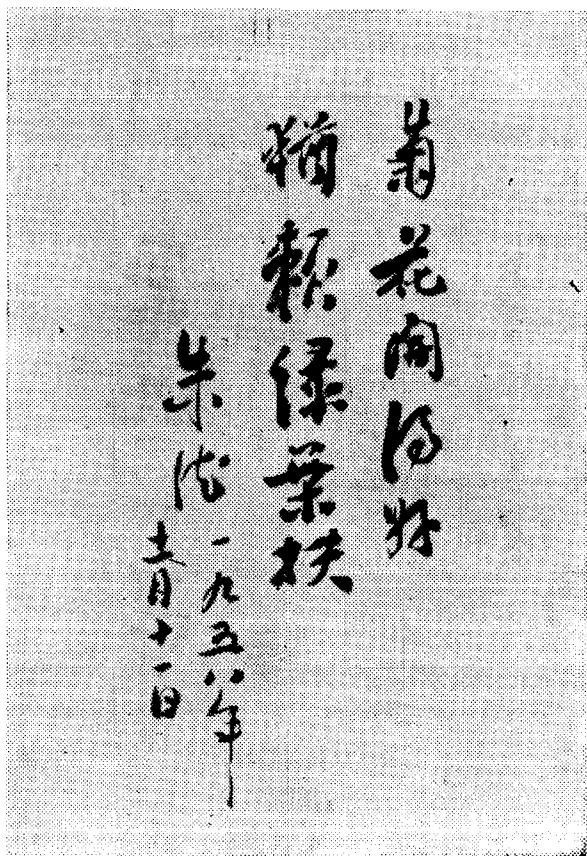 菊花開得好
猶賴綠葉扶
朱德
一九五八年
十一月十一日